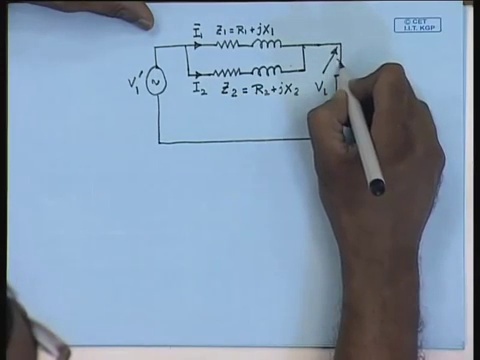 © CET
I.I.T. KGP
Ī₁ Z₁ = R₁ + jX₁
V₁'
~
I₂ Z₂ = R₂ + jX₂
V₂